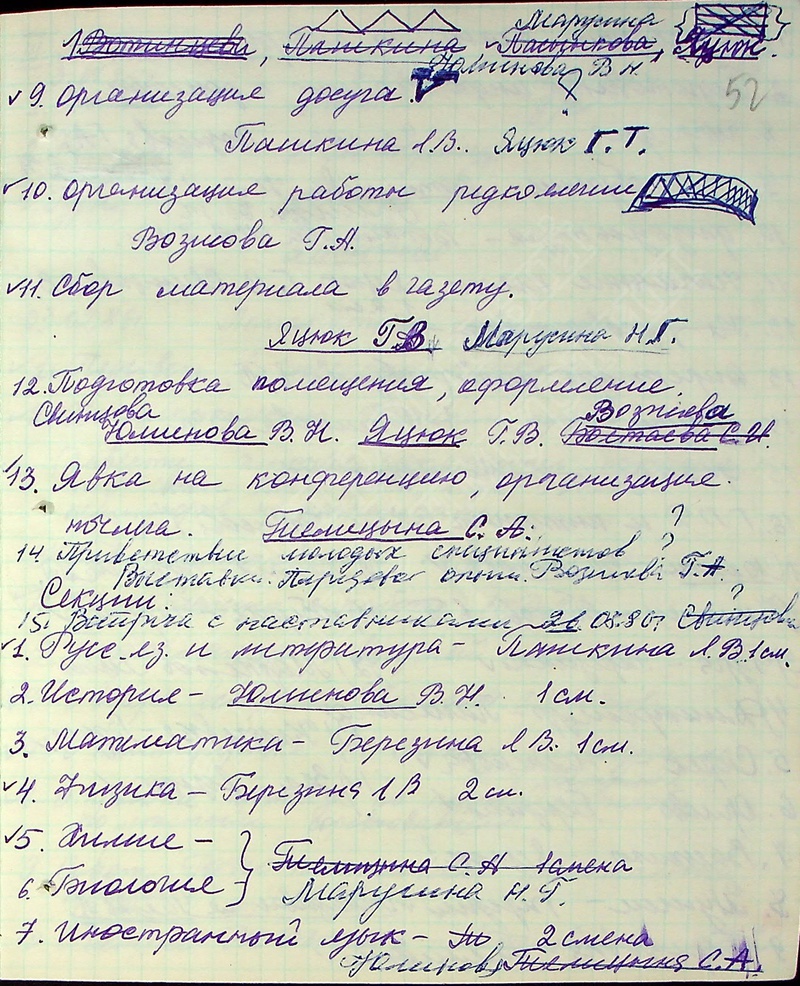 Марусина
1. Вотинцева, Пашкина Пасынкова, Яцюк.
Юминова В Н.
52
✓ 9. Организация досуга.
Пашкина Л.В.. Яцюк Г.Т.
✓10. Организация работы редколлегии
Возмова Г.А.
✓11. Сбор материала в газету.
Яцюк Г.В. Марусина Н.Г.
12. Подготовка помещения, оформление.
Свинцова Возмова
Юминова В.Н. Яцюк Г.В. Болтаева С.И.
13. Явка на конференцию, организация
ночлега. С. А. ?
14. Приветствие молодых специалистов
Выставки. Передовой опыт. Возмова Г.А.
Секции: ?
15. Встреча с наставниками 26.08.86г Свинцова
✓1. Русс. яз. и литература - Пашкина Л.В. 1 см.
2. История - Юминова В.Н. 1 см.
3. Математика - Березина Л В. 1 см.
✓4. Физика - Березина Л В 2 см.
✓5. Химие -
С. А 1 смена
6. Биология - Марусина Н. Г.
7. Иностранный язык - 2 смена
Юминова С. А.